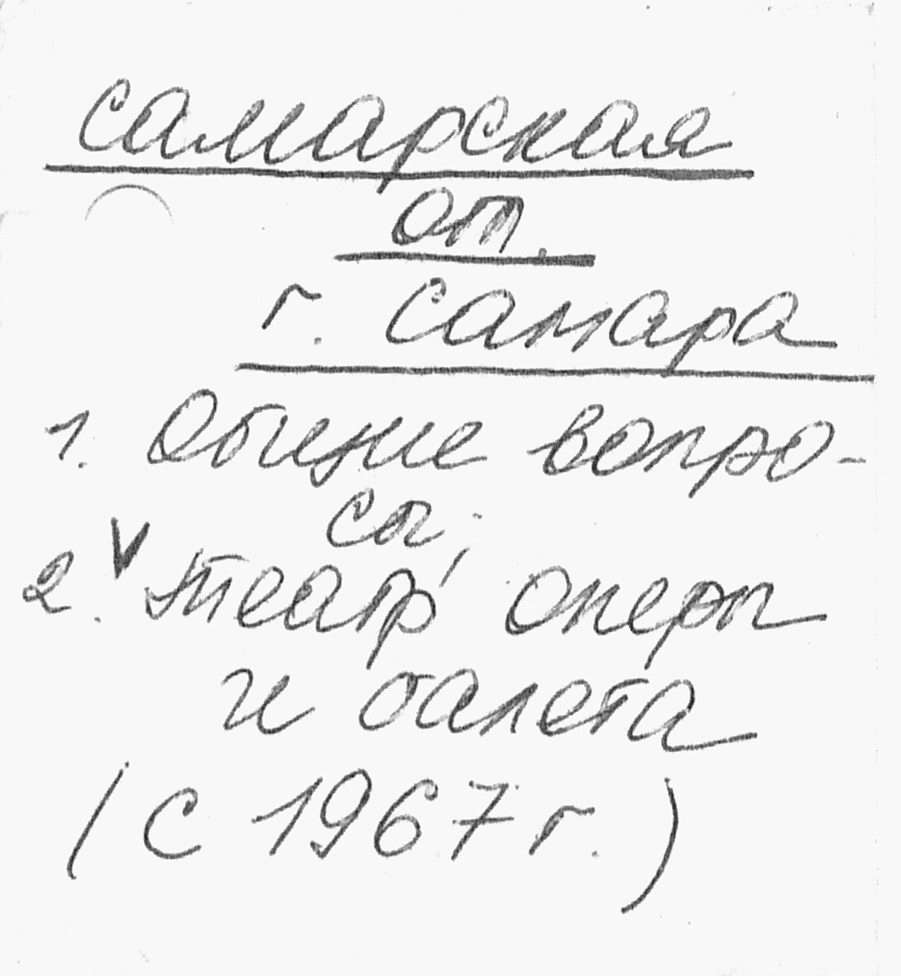 самарская
от.
г. самара
1. Общие вопро-
сы;
2. V театр оперы
и балета
(с 1967 г.)